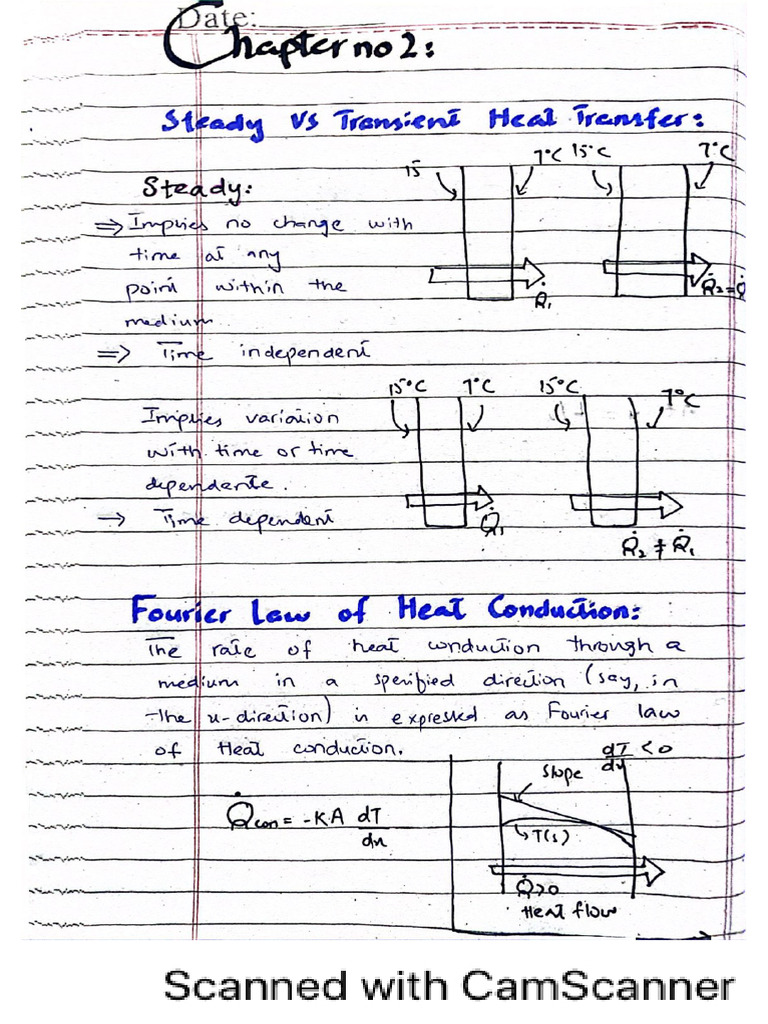 Date:
Chapter no 2:
Steady VS Transient Heat Transfer:
15 7°C 15°C 7°C
Steady:
⇒ Implies no change with
time at any
point within the
medium
Q̇₁ Q̇₂ = Q̇
⇒ Time independent
15°C 7°C 15°C 7°C
Implies variation
with time or time
dependante.
→ Time dependent
Q̇₁
Q̇₂ ≠ Q̇₁
Fourier Law of Heat Conduction:
The rate of heat conduction through a
medium in a specified direction (say, in
the x-direction) is expressed as Fourier law
of Heat conduction.
dT/dx < 0
Slope
Q̇con = -KA dT/dx
T(s)
Q̇>0
Heat flow
Scanned with CamScanner